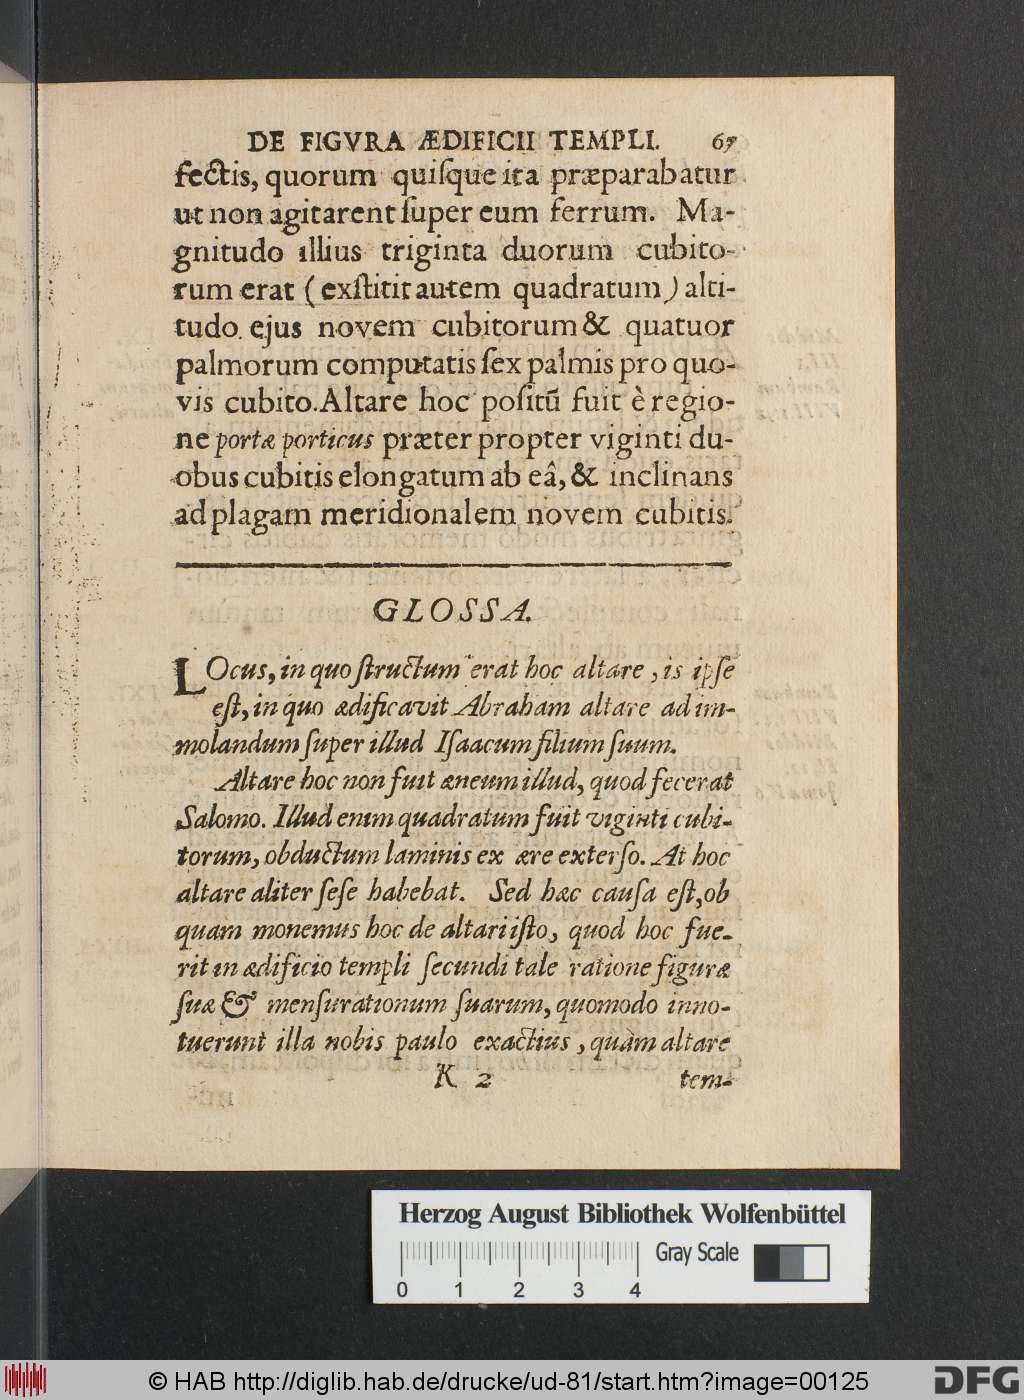 DE FIGVRA ÆDIFICII TEMPLI. 67
fectis, quorum quiſque ita præparabatur
ut non agitarent ſuper eum ferrum. Ma-
gnitudo illius triginta duorum cubito-
rum erat ( exſtitit autem quadratum ) alti-
tudo ejus novem cubitorum & quatuor
palmorum computatis ſex palmis pro quo-
vis cubito. Altare hoc poſitũ fuit è regio-
ne portæ porticus præter propter viginti du-
obus cubitis elongatum ab eâ, & inclinans
ad plagam meridionalem novem cubitis.
GLOSSA.
LOcus, in quo ſtructum erat hoc altare, is ipſe
eſt, in quo ædificavit Abraham altare ad im-
molandum ſuper illud Iſaacum filium ſuum.
Altare hoc non fuit æneum illud, quod fecerat
Salomo. Illud enim quadratum fuit viginti cubi-
torum, obductum laminis ex ære exterſo. At hoc
altare aliter ſeſe habebat. Sed hæc cauſa eſt, ob
quam monemus hoc de altari iſto, quod hoc fue-
rit in ædificio templi ſecundi tale ratione figuræ
ſuæ & menſurationum ſuarum, quomodo inno-
tuerunt illa nobis paulo exactius, quàm altare
K 2 tem-
Herzog August Bibliothek Wolfenbüttel
Gray Scale
0 1 2 3 4
© HAB http://diglib.hab.de/drucke/ud-81/start.htm?image=00125
DFG